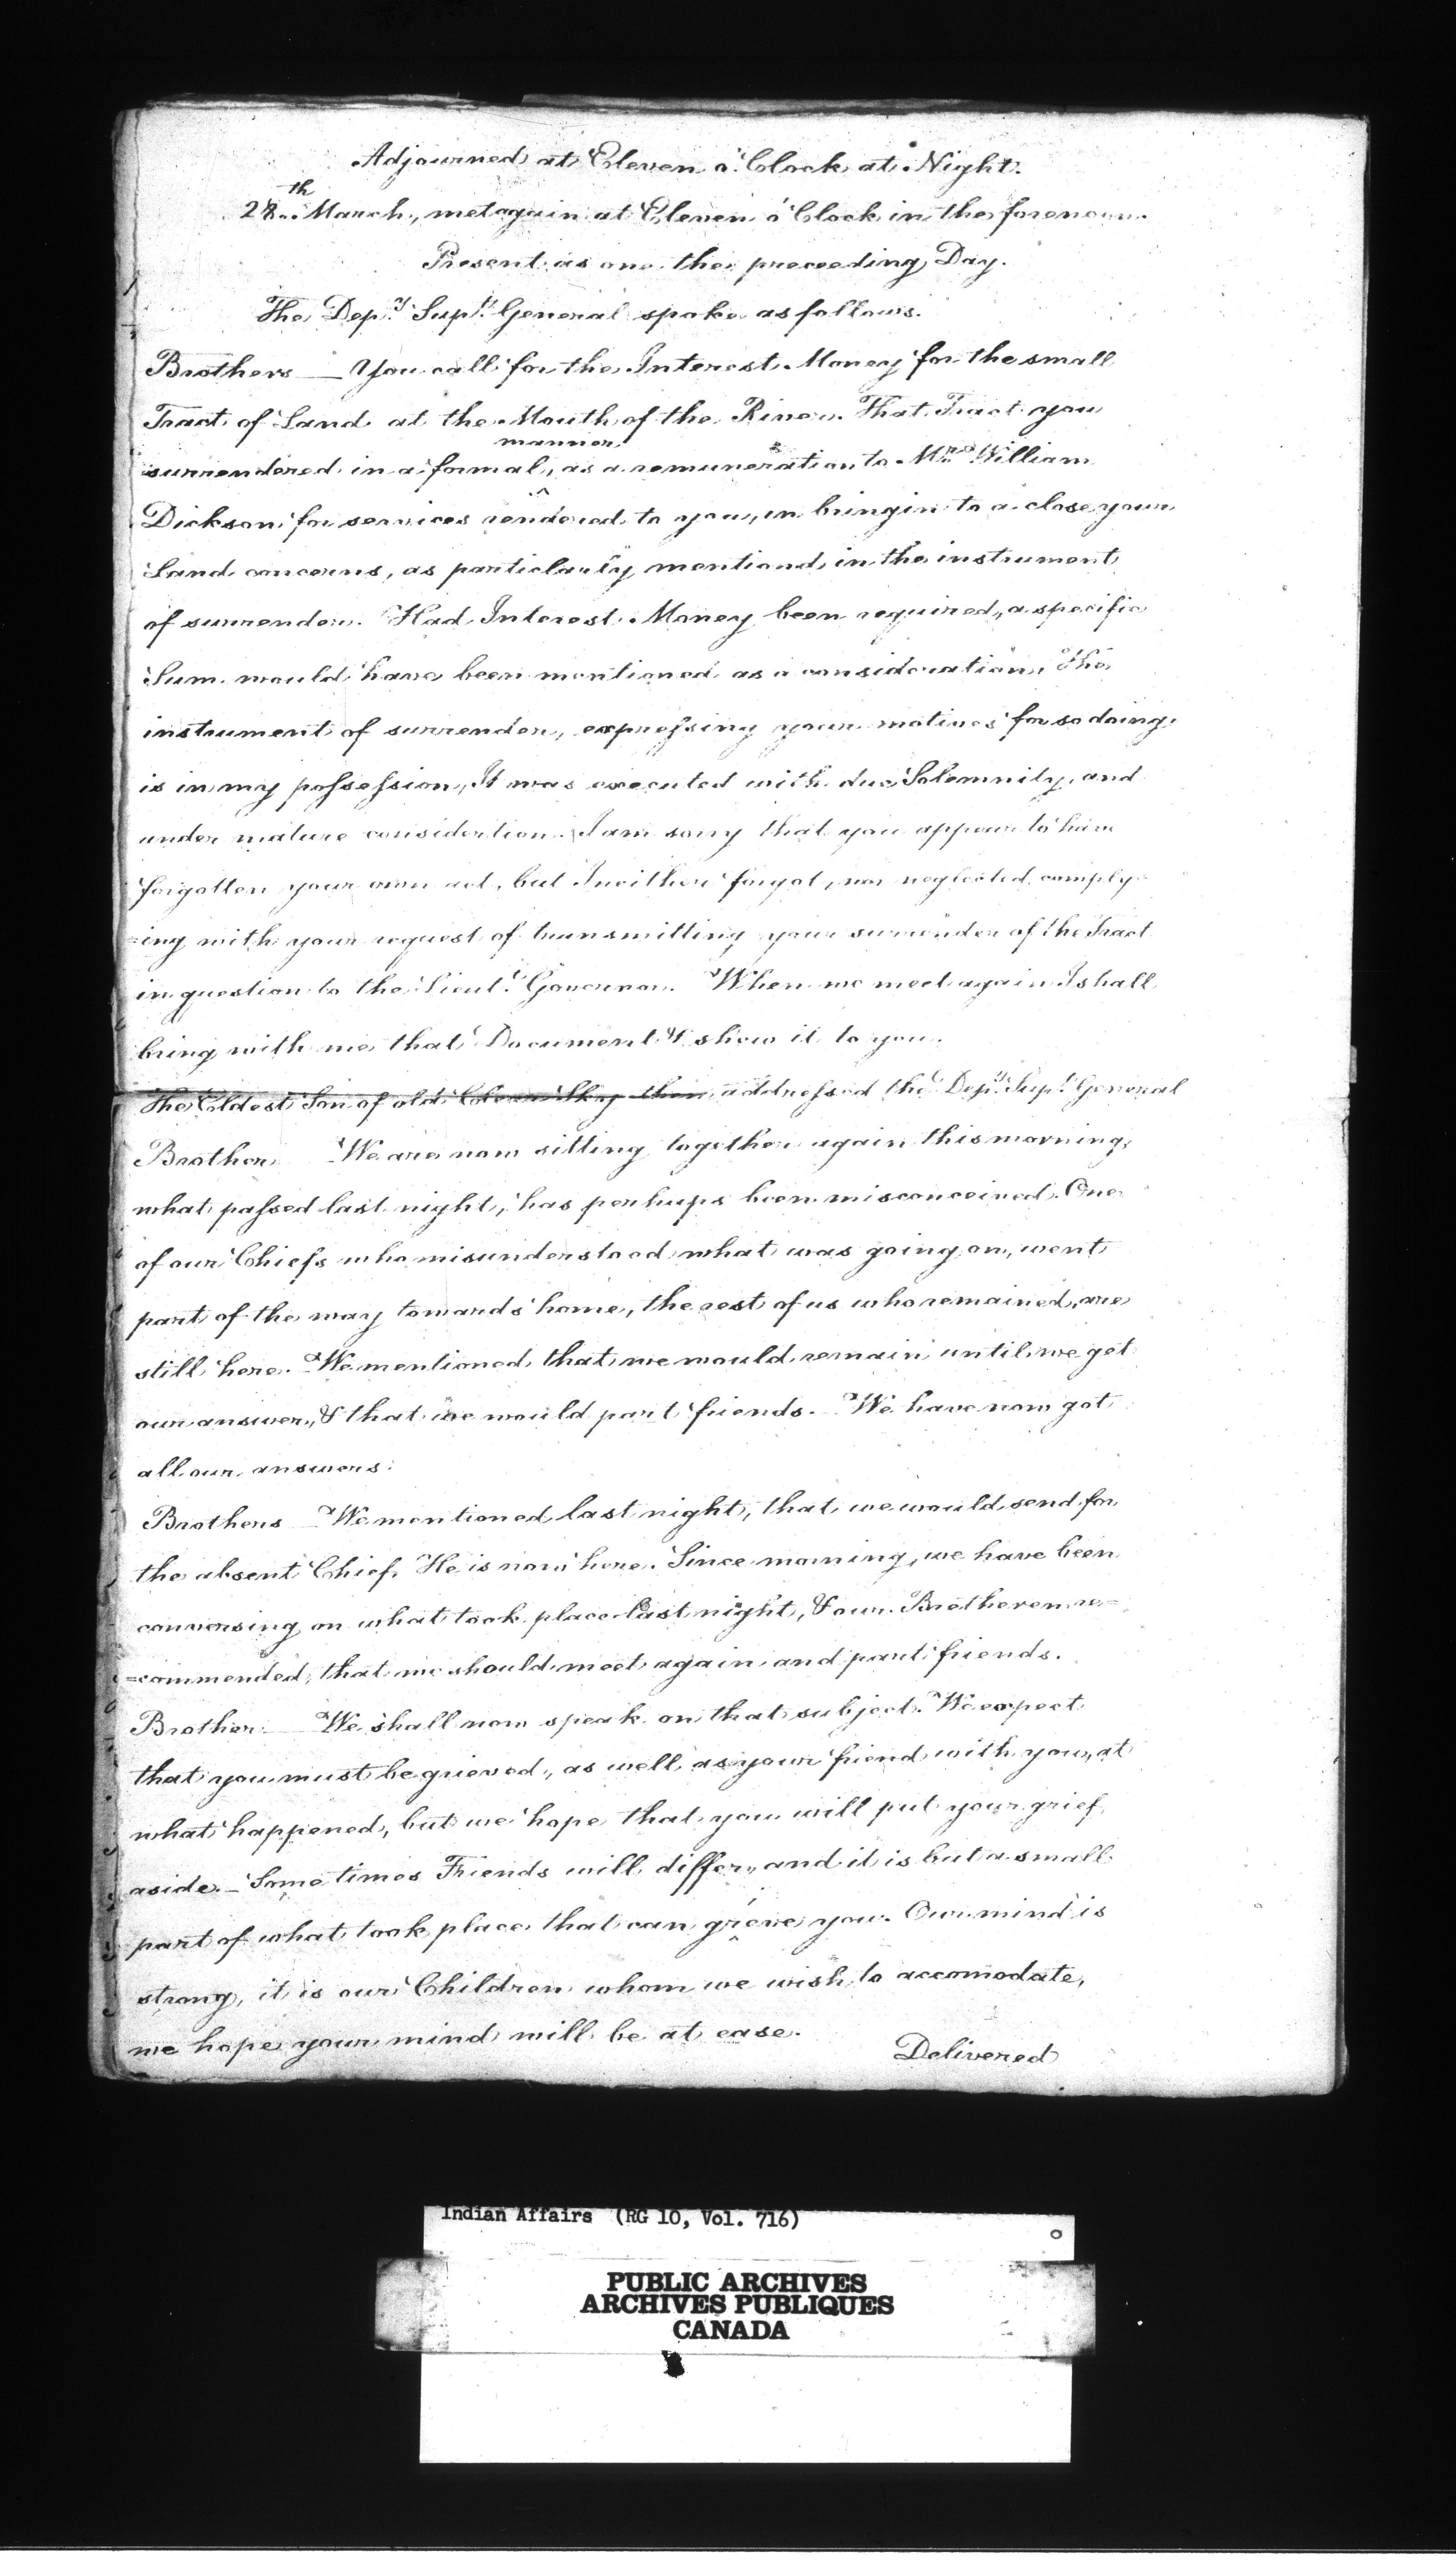 Adjourned at Eleven o'Clock at Night.
28th March, met again at Eleven o'Clock in the forenoon.
Present as one the preceeding Day.
The Depy Supt General spoke as follows.
Brothers — You call for the Interest Money for the small
Tract of Land at the Mouth of the River. That Tract you
manner
surrendered in a formal, as a remuneration to Mr William
Dickson for services rendered to you, in bringin to a close your
Land concerns, as particlarly mentiond in the instrument
of surrender. Had Interest Money been required, a specific
Sum would have been mentioned as a consideration. The
instrument of surrender, expressing your motives for so doing
is in my possession, It was executed with due Solemnity, and
under mature considertion. I am sorry that you appear to have
forgotten your own act, but I neither forgot, nor neglected comply-
=ing with your request of transmitting your surrender of the Tract
in question to the Lieut. Governor. When we meet again I shall
bring with me that Document & show it to you.
The Eldest Son of old Clear Sky then addressed the Depy Supt General
Brother We are now sitting together again this morning,
what passed last night, has perhaps been misconceived. One
of our Chiefs who misunderstood what was going on, went
part of the way towards home, the rest of us who remained, are
still here. We mentioned that we would remain until we get
our answer, & that we would part friends. We have now got
all our answers.
Brothers We mentioned last night, that we would send for
the absent Chief. He is now here. Since morning, we have been
conversing on what took place last night, & our Brotheren re=
=commended, that we should meet again and part friends.
Brother — We shall now speak on that subject. We expect
that you must be grieved, as well as your friend with you, at
what happened, but we hope that you will put your grief
aside. — Some times Friends will differ, and it is but a small
part of what took place that can grieve you. Our mind is
strong, it is our Children whom we wish to accomodate,
we hope your mind will be at ease.
Delivered
Indian Affairs (RG 10, Vol. 716)
PUBLIC ARCHIVES
ARCHIVES PUBLIQUES
CANADA